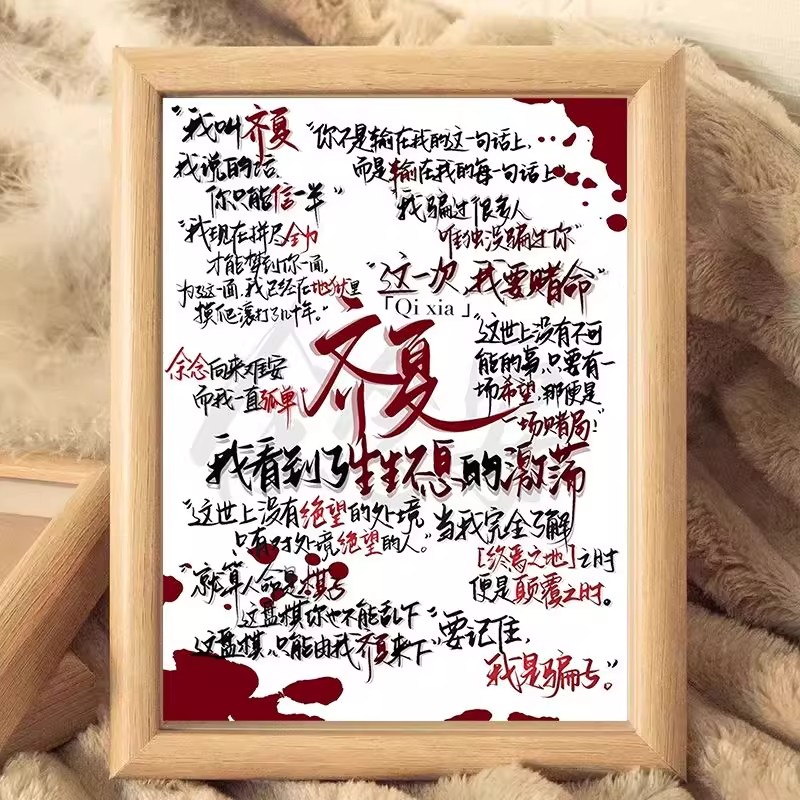 “我叫齐夏
我说的话
你只能信一半”
“你不是输在我的这一句话上,
而是输在我的每一句话上”
“我骗过很多人
唯独没骗过你”
“我现在拼尽全力
才能够到你一面,
为了这一面,我已经在地狱里
摸爬滚打了几十年。”
“这一次 我要赌命”
「Qi xia」
齐夏
“这世上没有不可
能的事,只要有一
场希望,那便是
一场赌局!”
余念向来难安
而我一直孤单
我看到了生生不息的激荡
“这世上没有绝望的处境
只有对处境绝望的人。”
当我完全了解
[终焉之地]之时
便是颠覆之时。
“就算人命是棋子
这盘棋你也不能乱下
这盘棋,只能由我齐夏来下”
“要记住,
我是骗子。”